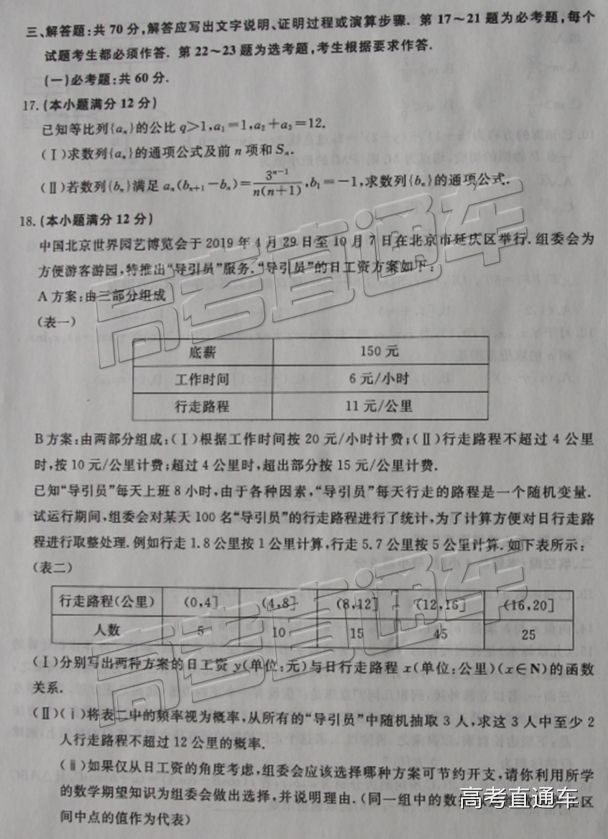 三、解答题:共 70 分,解答应写出文字说明、证明过程或演算步骤. 第 17~21 题为必考题,每个
试题考生都必须作答. 第 22~23 题为选考题,考生根据要求作答.
(一)必考题:共 60 分.
17. (本小题满分 12 分)
已知等比列{aₙ}的公比 q>1,a₁=1,a₂+a₃=12.
(Ⅰ)求数列{aₙ}的通项公式及前 n 项和 Sₙ.
(Ⅱ)若数列{bₙ}满足 aₙ(bₙ₊₁-bₙ)=3ⁿ⁻¹/n(n+1),b₁=-1,求数列{bₙ}的通项公式.
18. (本小题满分 12 分)
中国北京世界园艺博览会于 2019 年 4 月 29 日至 10 月 7 日在北京市延庆区举行. 组委会为
方便游客游园,特推出“导引员”服务.“导引员”的日工资方案如下:
A 方案:由三部分组成
(表一)
底薪 150 元
工作时间 6 元/小时
行走路程 11 元/公里
B 方案:由两部分组成:(Ⅰ)根据工作时间按 20 元/小时计费;(Ⅱ)行走路程不超过 4 公里
时,按 10 元/公里计费;超过 4 公里时,超出部分按 15 元/公里计费.
已知“导引员”每天上班 8 小时,由于各种因素,“导引员”每天行走的路程是一个随机变量.
试运行期间,组委会对某天 100 名“导引员”的行走路程进行了统计,为了计算方便对日行走路
程进行取整处理. 例如行走 1.8 公里按 1 公里计算,行走 5.7 公里按 5 公里计算. 如下表所示:
(表二)
行走路程(公里) (0,4] (4,8] (8,12] (12,16] (16,20]
人数 5 10 15 45 25
(Ⅰ)分别写出两种方案的日工资 y(单位:元)与日行走路程 x(单位:公里)(x∈N)的函数
关系.
(Ⅱ)(ⅰ)将表二中的频率视为概率,从所有的“导引员”中随机抽取 3 人,求这 3 人中至少 2
人行走路程不超过 12 公里的概率.
(ⅱ)如果仅从日工资的角度考虑,组委会应该选择哪种方案可节约开支,请你利用所学
的数学期望知识为组委会做出选择,并说明理由.(同一组中的数 区
间中点的值作为代表)
高考直通车
高考直通车
高考直通车